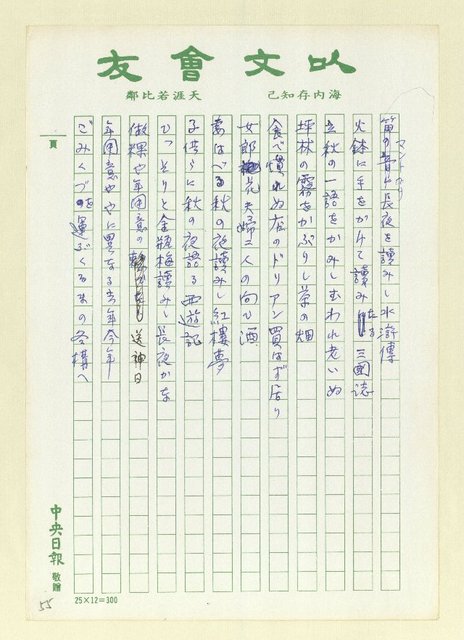 以文會友
海內存知己
天涯若比鄰
笛の音に長夜を讀みし水滸傳
火鉢に手をかけて讀みたる三國誌
立秋の一語をかみしむわれ老いぬ
坪林の霧をかぶりし茶の畑
食べ慣れぬ在のドリアン買はず居り
女郎花夫婦二人の向ひ酒
あはべる秋の夜讀みし紅樓夢
子供らに秋の夜語る西遊記
ひっそりと金瓶梅讀みし長夜かな
做粿や年用意の 送神日
年用意やゝに異なる去年今年
ごみくづを運ぶくるまの冬構へ
頁
中央日報敬贈
25×12=300
55